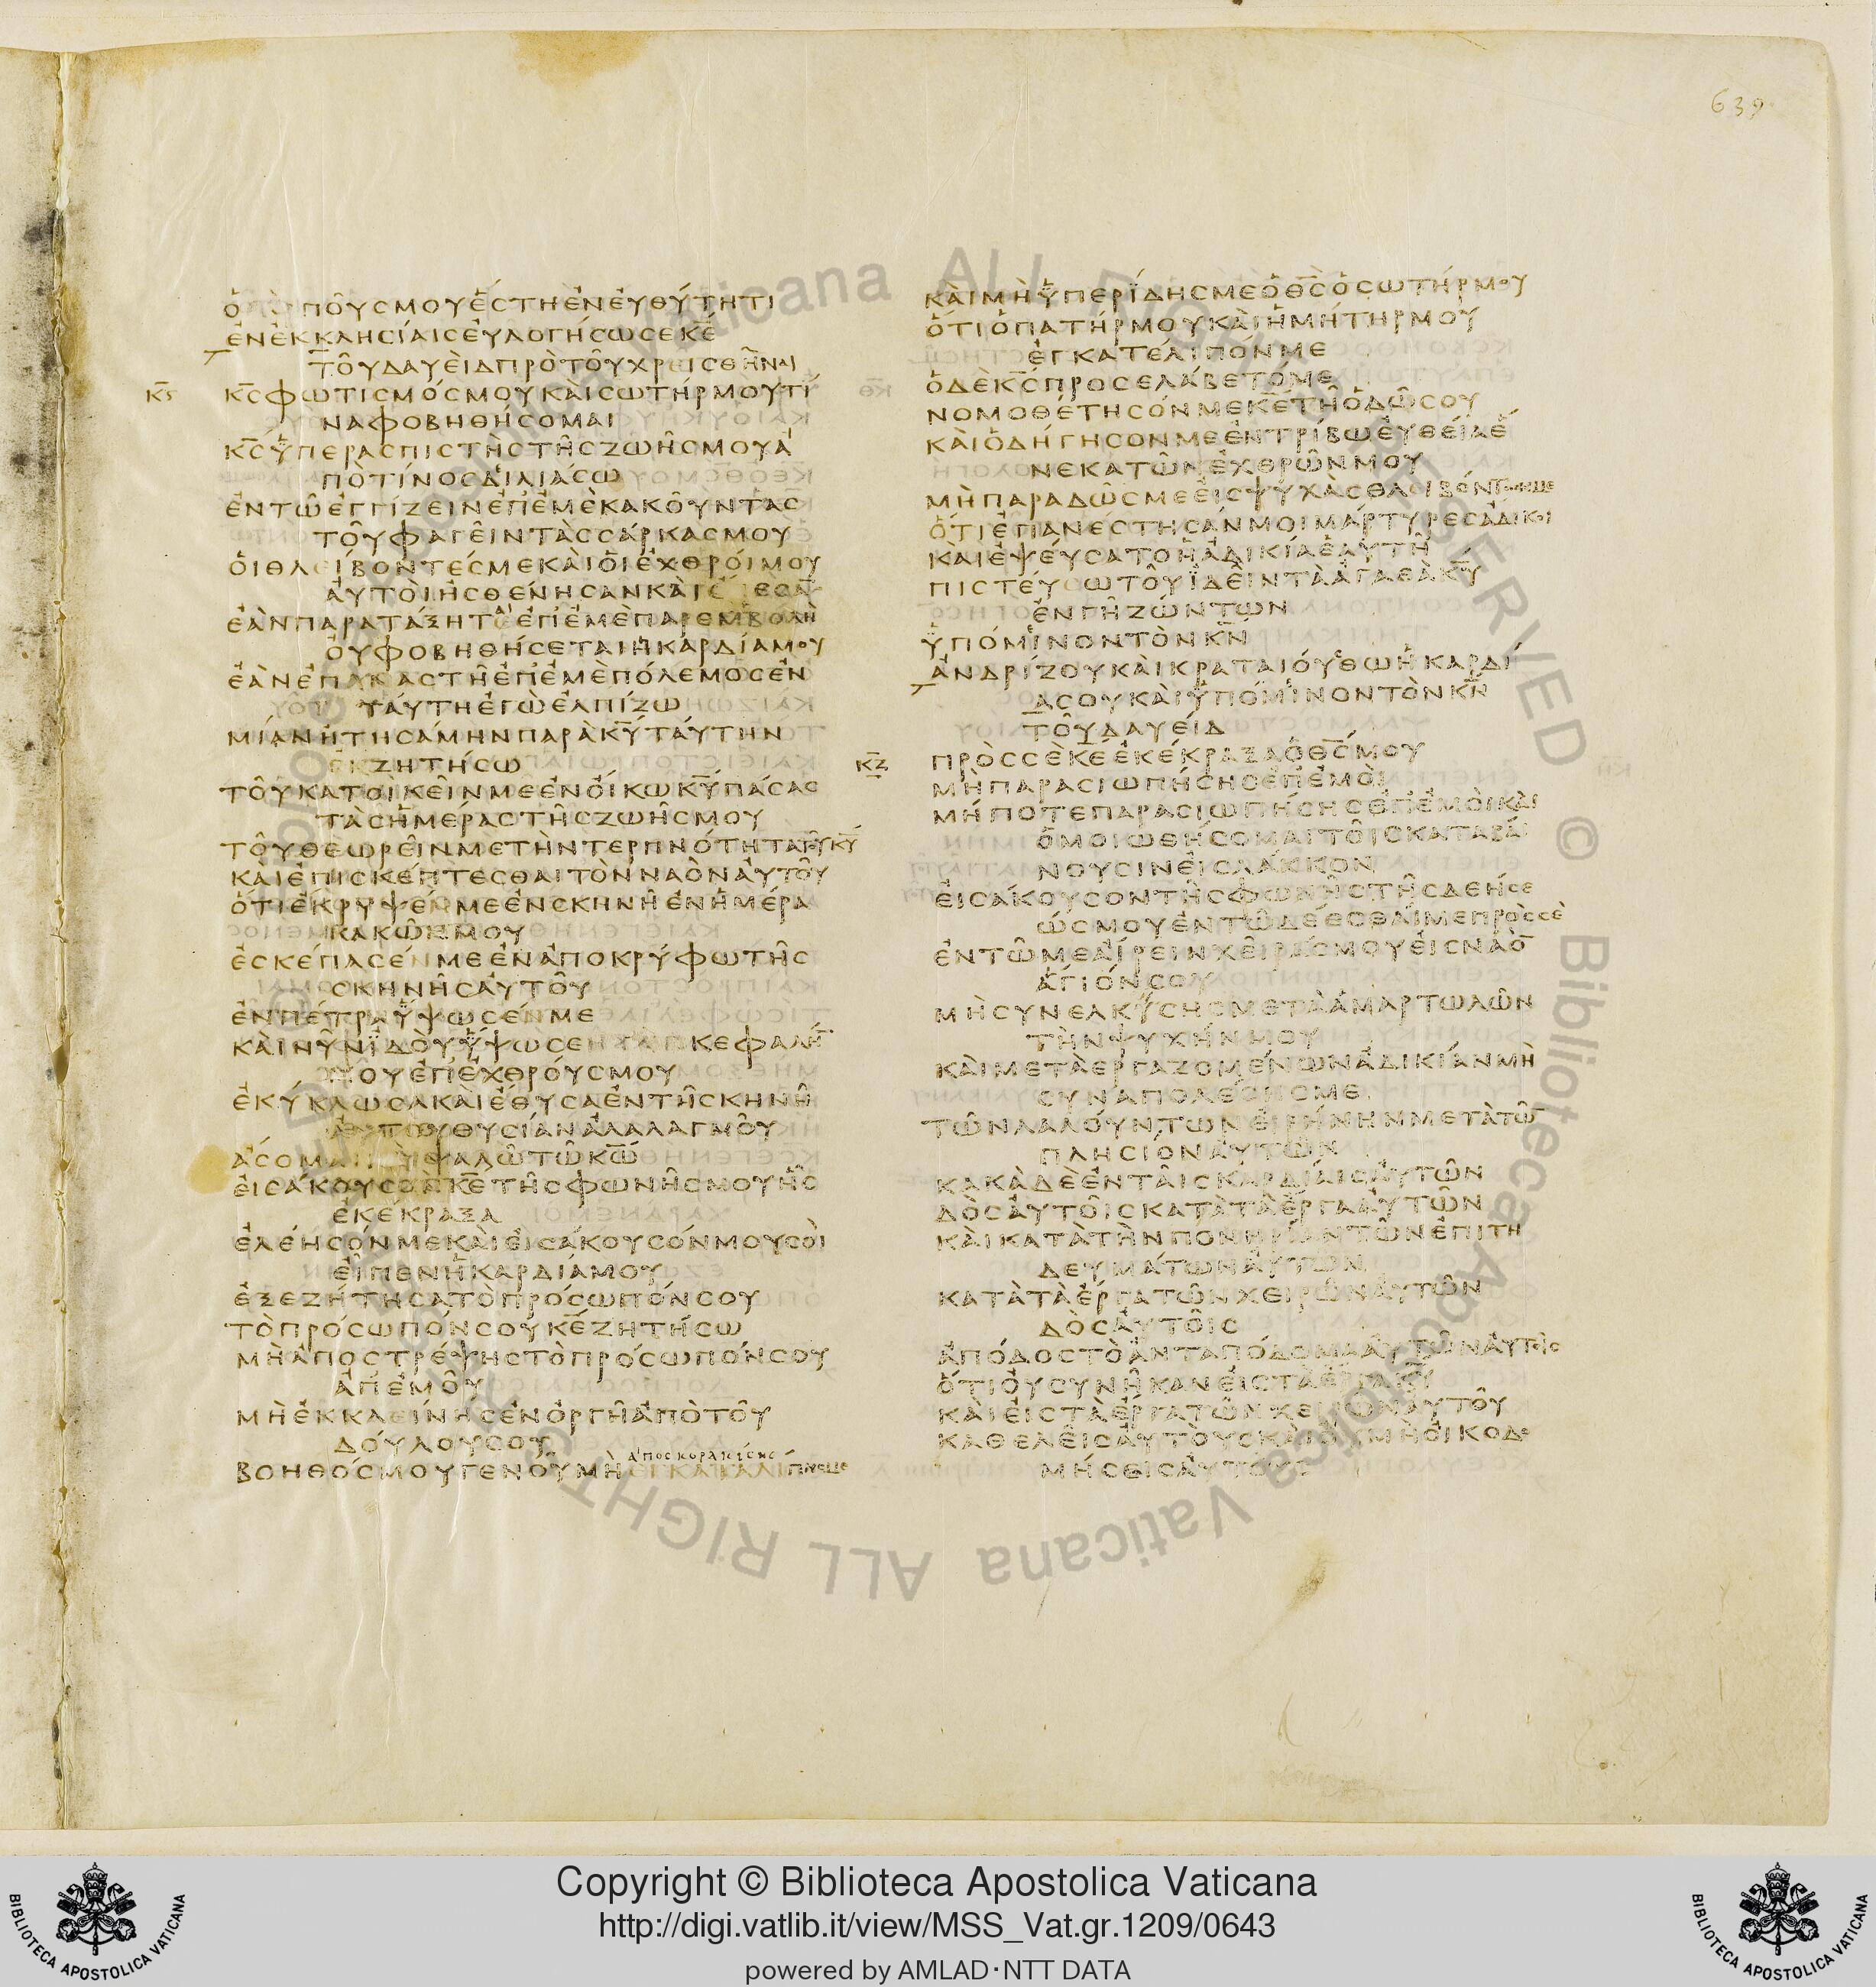 639
ὁ πούς μου ἔστη ἐν εὐθύτητι
ἐν ἐκκλησίαις εὐλογήσω σε κε
τοῦ δαυεὶδ πρὸ τοῦ χρεισθῆναι
κϛ
κς φωτισμός μου καὶ σωτήρ μου τί
να φοβηθήσομαι
κς ὑπερασπιστὴς τῆς ζωῆς μου ἀ
πὸ τίνος διλιάσω
ἐν τῷ ἐγγίζειν ἐπ ἐμὲ κακοῦντας
τοῦ φαγεῖν τὰς σάρκας μου
οἱ θλείβοντές με καὶ οἱ ἐχθροί μου
αὐτοὶ ἠσθένησαν καὶ
ἐὰν παρατάξηται ἐπ ἐμὲ παρεμβολὴ
οὐ φοβηθήσεται ἡ καρδία μου
ἐὰν ἐπαναστῇ ἐπ ἐμὲ πόλεμος ἐν
ταύτη ἐγὼ ἐλπίζω
μίαν ᾐτησάμην παρὰ κυ ταύτην
ἐκζητήσω
τοῦ κατοικεῖν με ἐν οἴκω κυ πάσας
τὰς ἡμέρας τῆς ζωῆς μου
τοῦ θεωρεῖν με τὴν τερπνότητα τοῦ κυ
καὶ ἐπισκέπτεσθαι τὸν ναὸν αὐτοῦ
ὅτι ἔκρυψέν με ἐν σκηνῇ ἐν ἡμέρα
κακῶν μου
ἐσκέπασέν με ἐν ἀποκρύφω τῆς
σκηνῆς αὐτοῦ
ἐν πέτρα ὕψωσέν με
καὶ νῦν ἰδοὺ ὕψωσεν κεφαλή
μου ἐπ ἐχθρούς μου
ἐκύκλωσα καὶ ἔθυσα ἐν τῇ σκηνῇ
αὐτοῦ θυσίαν ἀλαλαγμοῦ
ᾄσομαι ψαλῶ τῷ κω
εἰσάκουσον κε τῆς φωνῆς μου ἧς
ἐκέκραξα
ἐλέησόν με καὶ εἰσάκουσόν μου σοὶ
εἶπεν ἡ καρδία μου
ἐξεζήτησα τὸ πρόσωπόν σου
τὸ πρόσωπόν σου κε ζητήσω
μὴ ἀποστρέψης τὸ πρόσωπόν σου
ἀπ ἐμοῦ
μὴ ἐκκλείνης ἐν ὀργῇ ἀπὸ τοῦ
δούλου σου
ἀποσκορακίσης
βοηθός μου γενοῦ μὴ
καὶ μὴ ὑπερίδης με ὁ θς ὁ σωτήρ μου
ὅτι ὁ πατήρ μου καὶ ἡ μήτηρ μου
ἐγκατέλιπόν με
ὁ δὲ κς προσελάβετό με
νομοθέτησόν με κε τῇ ὁδῷ σου
καὶ ὁδήγησόν με ἐν τρίβω εὐθεία ἕ
νεκα τῶν ἐχθρῶν μου
μὴ παραδῷς με εἰς ψυχὰς θλιβόντων με
ὅτι ἐπανέστησάν μοι μάρτυρες ἄδικοι
καὶ ἐψεύσατο ἡ ἀδικία ἑαυτῇ
πιστεύω τοῦ ἰδεῖν τὰ ἀγαθὰ κυ
ἐν γῇ ζώντων
ὑπόμεινον τὸν κν
ἀνδρίζου καὶ κραταιούσθω ἡ καρδί
α σου καὶ ὑπόμεινον τὸν κν
τοῦ δαυείδ
κζ
πρὸς σὲ κε ἐκέκραξα ὁ θς μου
μὴ παρασιωπήσης ἐπ ἐμοὶ
μήποτε παρασιωπήσης ἐπ ἐμοὶ καὶ
ὁμοιωθήσομαι τοῖς καταβαί
νουσιν εἰς λάκκον
εἰσάκουσον τῆς φωνῆς τῆς δεήσε
ώς μου ἐν τῷ δέεσθαί με πρὸς σὲ
ἐν τῷ με αἴρειν χεῖράς μου εἰς ναὸ
ἅγιόν σου
μὴ συνελκύσης μετὰ ἁμαρτωλῶν
τὴν ψυχήν μου
καὶ μετὰ ἐργαζομένων ἀδικίαν μὴ
συναπολέσης με
τῶν λαλούντων εἰρήνην μετὰ τῶ
πλησίον αὐτῶν
κακὰ δὲ ἐν ταῖς καρδίαις αὐτῶν
δὸς αὐτοῖς κατὰ τὰ ἔργα αὐτῶν
καὶ κατὰ τὴν πονηρίαν τῶν ἐπιτη
δευμάτων αὐτῶν
κατὰ τὰ ἔργα τῶν χειρῶν αὐτῶν
δὸς αὐτοῖς
ἀπόδος τὸ ἀνταπόδομα αὐτῶν αὐτοῖς
ὅτι οὐ συνῆκαν εἰς τὰ ἔργα κυ
καὶ εἰς τὰ ἔργα τῶν χειρῶν αὐτοῦ
καθελεῖς αὐτοὺς καὶ οὐ μὴ οἰκοδο
μήσεις αὐτούς
Copyright © Biblioteca Apostolica Vaticana
http://digi.vatlib.it/view/MSS_Vat.gr.1209/0643
powered by AMLAD·NTT DATA
BIBLIOTECA APOSTOLICA VATICANA
BIBLIOTECA APOSTOLICA VATICANA